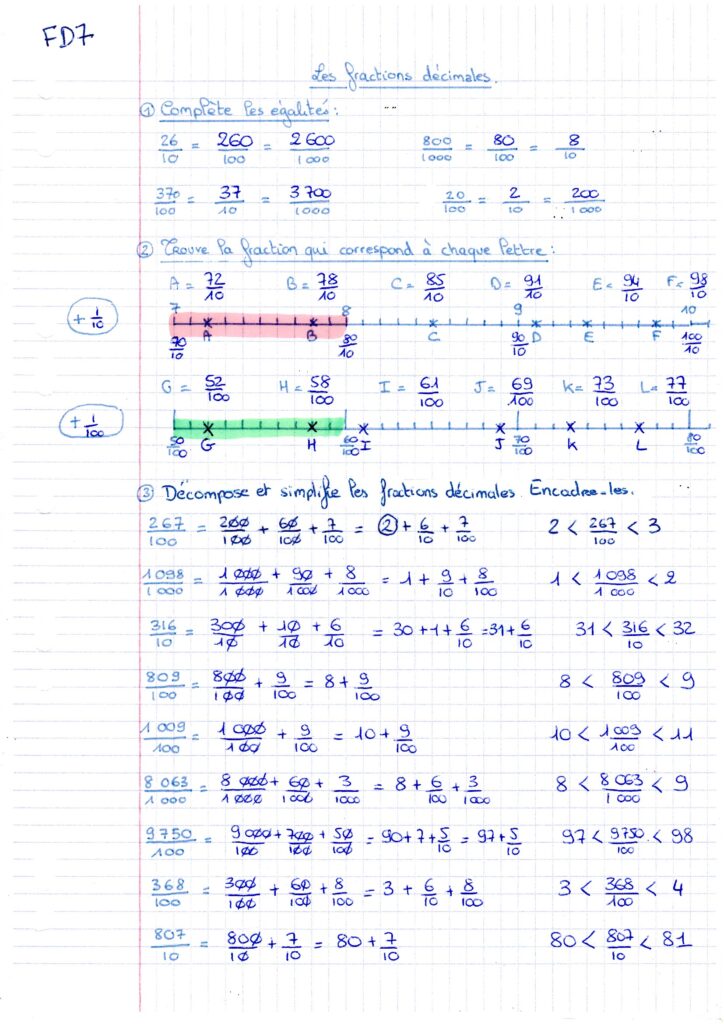 FD7
Les fractions décimales.
① Complète les égalités :
26/10 = 260/100 = 2600/1000    800/1000 = 80/100 = 8/10
370/100 = 37/10 = 3700/1000    20/100 = 2/10 = 200/1000
② Trouve la fraction qui correspond à chaque lettre :
A = 72/10    B = 78/10    C = 85/10    D = 91/10    E = 94/10    F = 98/10
7    8    9    10
+ 1/10
70/10    A    B    80/10    C    90/10    D    E    F    100/10
G = 52/100    H = 58/100    I = 61/100    J = 69/100    K = 73/100    L = 77/100
+ 1/100
50/100    G    H    60/100    I    J    70/100    K    L    80/100
③ Décompose et simplifie les fractions décimales. Encadre-les.
267/100 = 200/100 + 60/100 + 7/100 = ② + 6/10 + 7/100    2 < 267/100 < 3
1098/1000 = 1000/1000 + 90/1000 + 8/1000 = 1 + 9/10 + 8/100    1 < 1098/1000 < 2
316/10 = 300/10 + 10/10 + 6/10 = 30 + 1 + 6/10 = 31 + 6/10    31 < 316/10 < 32
809/100 = 800/100 + 9/100 = 8 + 9/100    8 < 809/100 < 9
1009/100 = 1000/100 + 9/100 = 10 + 9/100    10 < 1009/100 < 11
8063/1000 = 8000/1000 + 60/1000 + 3/1000 = 8 + 6/100 + 3/1000    8 < 8063/1000 < 9
9750/100 = 9000/100 + 700/100 + 50/100 = 90 + 7 + 5/10 = 97 + 5/10    97 < 9750/100 < 98
368/100 = 300/100 + 60/100 + 8/100 = 3 + 6/10 + 8/100    3 < 368/100 < 4
807/10 = 800/10 + 7/10 = 80 + 7/10    80 < 807/10 < 81